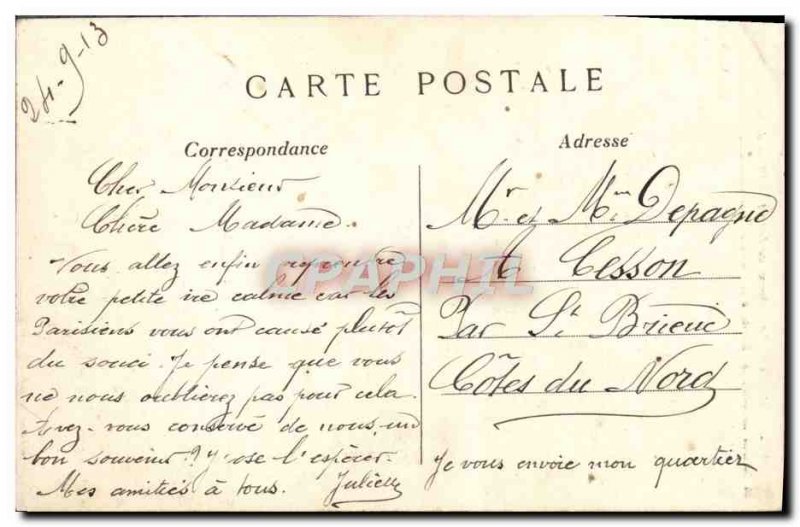 24-9-13
CARTE POSTALE
Correspondance
Cher Monsieur
Chère Madame.
Vous allez enfin reprendre
votre petite vie calme car les
Parisiens vous ont causé plutôt
du souci. Je pense que vous
ne nous oublierez pas pour cela.
Avez-vous conservé de nous, un
bon souvenir ? J'ose l'espérer.
Mes amitiés à tous. Juliette
Adresse
Mr et Mme Depagne
à Cesson
Par St Brieuc
Côtes du Nord
Je vous envoie mon quartier
CPAPHIL